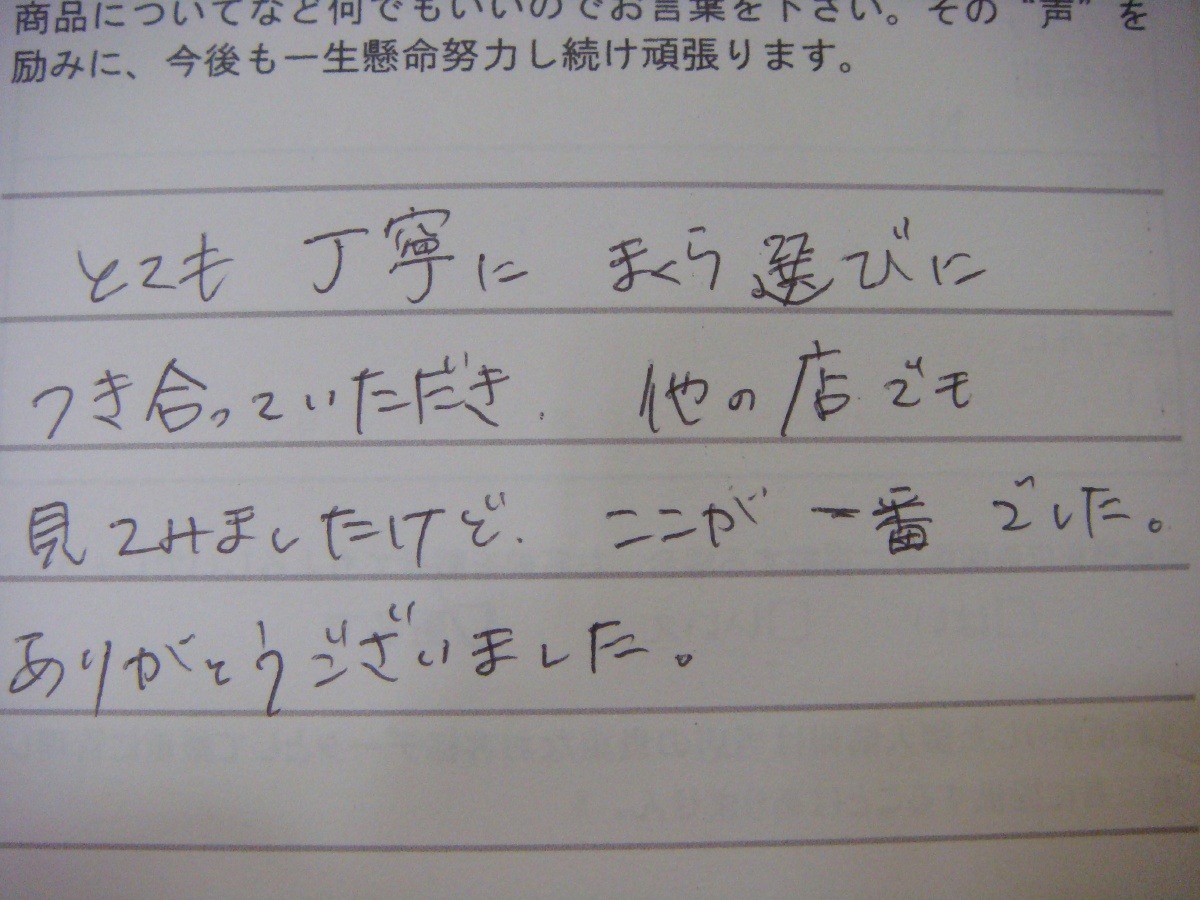 商品についてなど何でもいいのでお言葉を下さい。その“声”を
励みに、今後も一生懸命努力し続け頑張ります。
とても 丁寧に まくら選びに
つき合っていただき、 他の店でも
見てみましたけど、 ここが 一番 でした。
ありがとうございました。